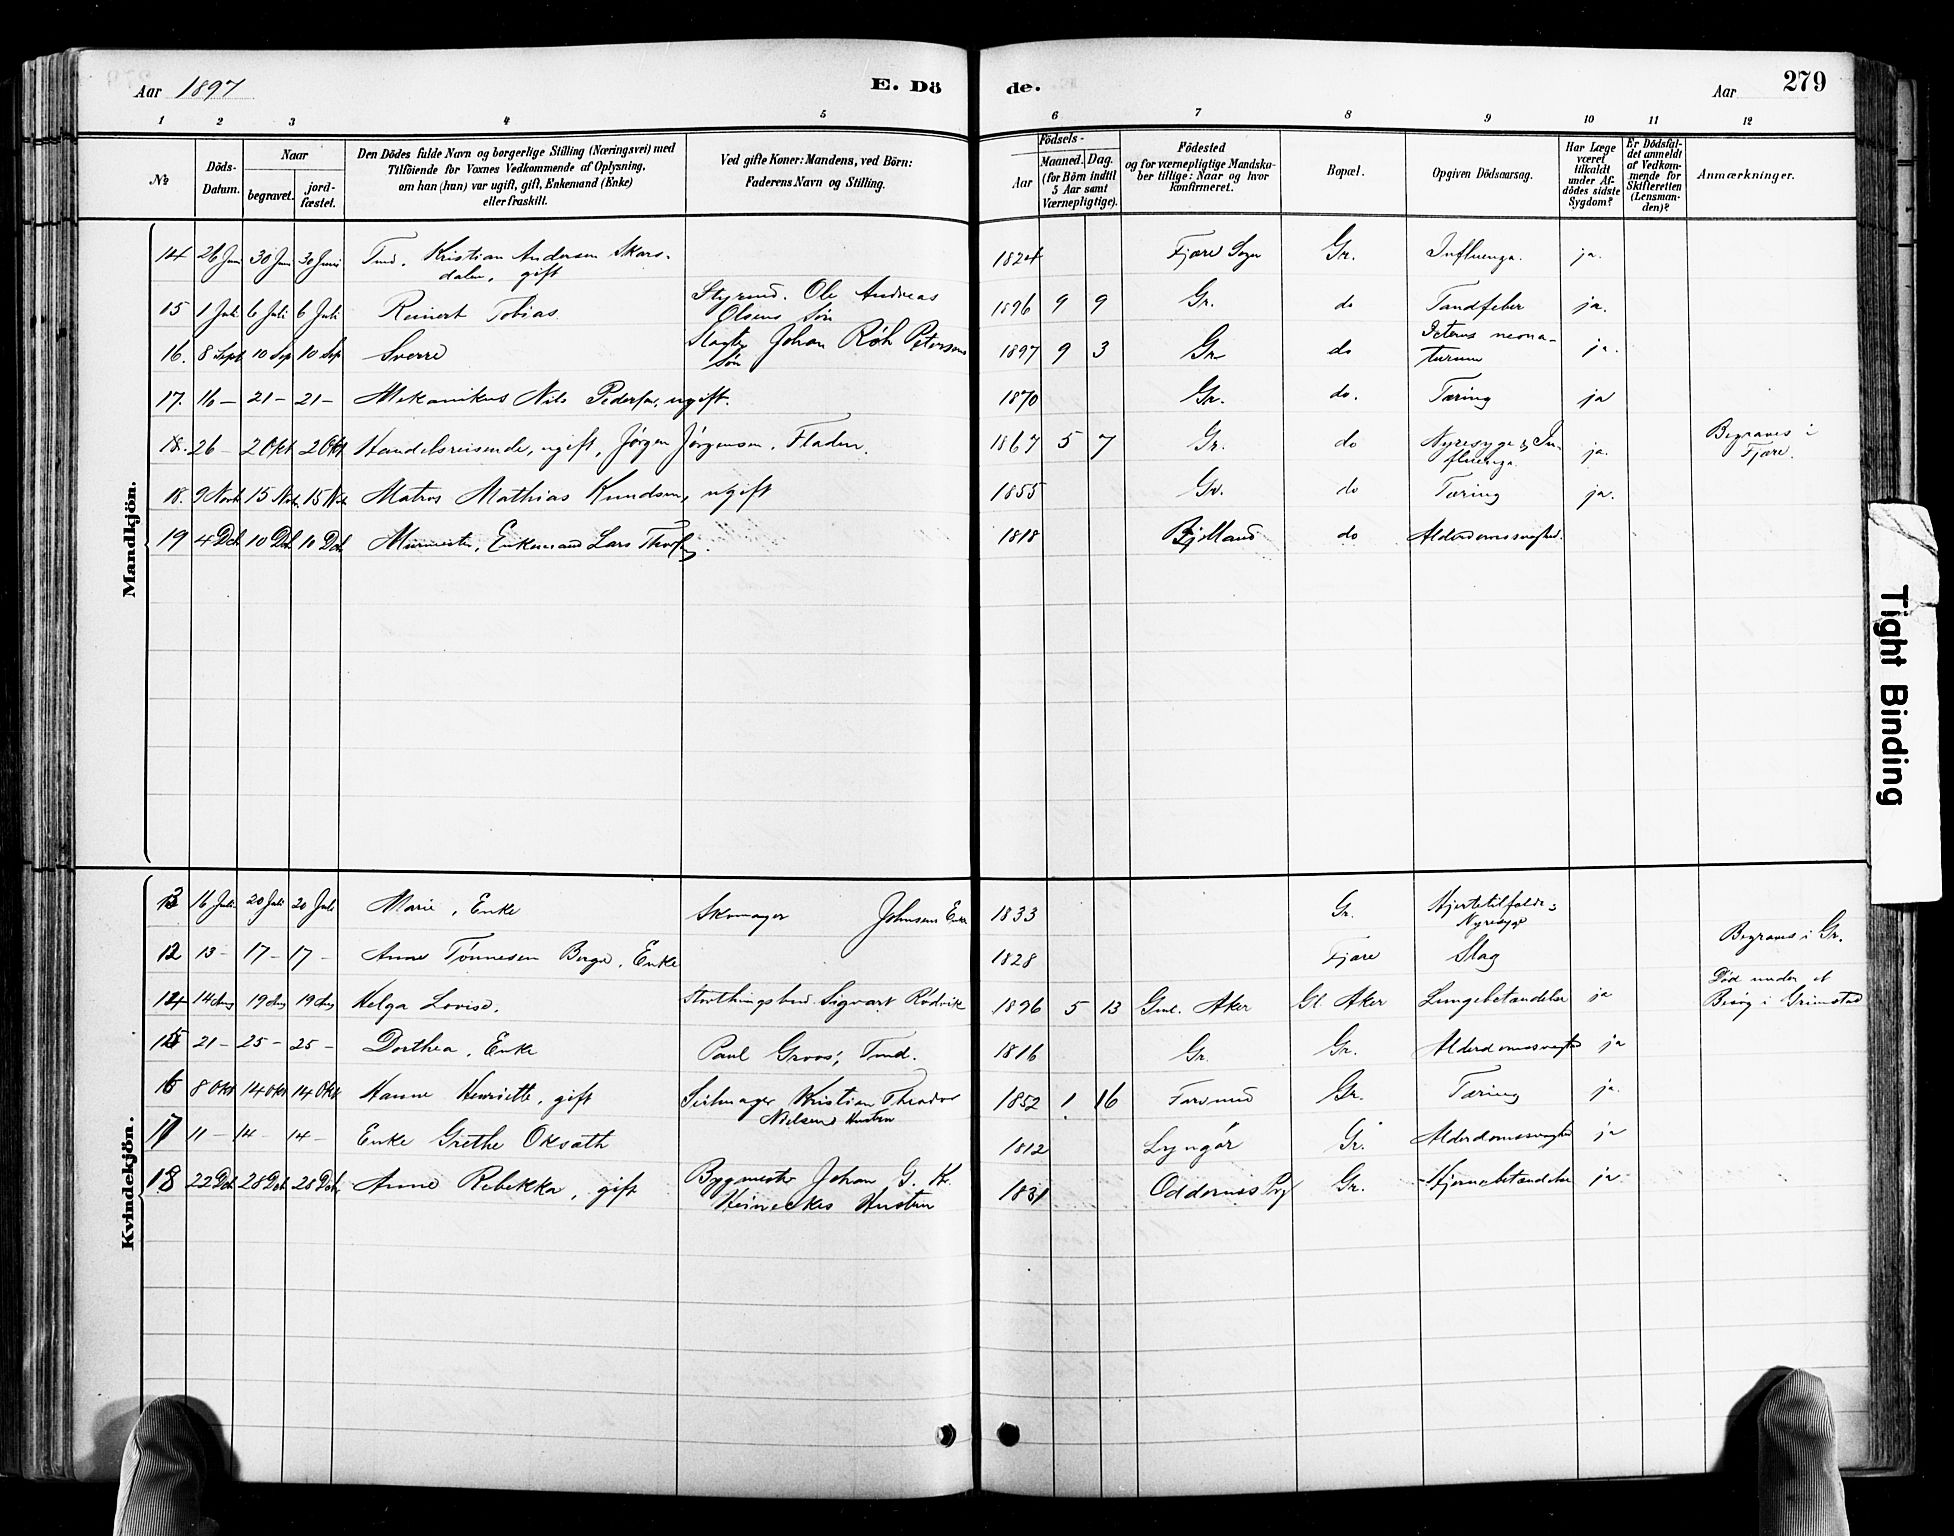 Aar 1897
E. Dö
de.
Aar
279
1 2 3 4 5 6 7 8 9 10 11 12
№
Döds-Datum.
Naar
begravet.
jord-fæstet.
Den Dödes fulde Navn og borgerlige Stilling (Næringsvei) med
Tilföiende for Voxnes Vedkommende af Oplysning,
om han (hun) var ugift, gift, Enkemand (Enke)
eller fraskilt.
Ved gifte Koner: Mandens, ved Börn:
Faderens Navn og Stilling.
Födsels-
Aar
Maaned. Dag.
(for Börn indtil
5 Aar samt
Værnepligtige).
Födested
og for værnepligtige Mandska-
ber tillige: Naar og hvor
konfirmeret.
Bopæl.
Opgiven Dödsaarsag.
Har Læge
været
tilkaldt
under Af-
dödes sidste
Sygdom?
Er Dödsfal-
det anmeldt
af Vedkom-
mende for
Skifteretten
(Lensman-
den)?
Anmærkninger.
Mandkjön.
14 26 Juni 30 Juni 30 Juni Tmd. Kristian Andersen Skars-
dalen, gift 1824 Fjære Sogn Gr. Influenza. ja.
15 1 Juli 6 Juli 6 Juli Reinert Tobias Styrmd. Ole Andreas
Olsens Søn 1896 9 9 Gr. do Tandfeber ja.
16. 8 Sept 10 Sep 10 Sep Sverre Slagter Johan Röh Petersens
Søn 1897 9 3 Gr. do Icterus neona-
torum ja.
17. 16 - 21 - 21 - Mekanikus Nils Pedersen, ugift. 1870 Gr. do. Tæring ja
18. 26 - 2 Okt 2 Okt Handelsreisende, ugift, Jørgen Jørgensen, Fladen. 1867 5 7 Gr. do Nyresyge & In-
fluenza. ja. Begraves i
Fjære.
18. 9 Novb 15 Nov. 15 Nov Matros Mathias Knudsen, ugift 1855 Gr. do Tæring ja.
19 4 Dcb 10 Dcb 10 Dcb Murmester, Enkemand Lars 1818 Bjelland do Alderdomssvaghed.
Kvindekjön.
13 16 Juli 20 Juli 20 Juli Marie, Enke Skomager Johnsens Enke 1833 Gr. Hjertetilfælde &
Nyresyge
12 13 - 17 - 17 - Anne Tønnesen Berge, Enke 1828 Fjære Slag Begraves i Gr.
14 14 Aug 19 Aug 19 Aug Helga Lovise. Storthingsbud Sigvart Rødvik 1896 5 13 Gml. Aker Gl. Aker Lungebetændelse ja Død under et
Besøg i Grimstad
15 21 - 25 - 25 - Dorthea, Enke Paul Groos, Tmd. 1816 Gr. Gr. Alderdomssvaghed ja
16 8 Okt 14 Okt 14 Okt Hanne Henriette, gift Seilmager Kristian Theodor
Nielsens Hustru 1852 1 16 Farsund Gr. Tæring ja.
17 11 - 14 - 14 - Enke Grethe Oksath 1812 Lyngør Gr. Alderdomssvaghed ja
18 22 Dcb 28 Dcb 28 Dcb Anne Rebekka, gift Bygmester Johan G. K.
Heineckes Hustru 1831 Oddernes Prg Gr. Hjernebetændelse ja
Tight Binding